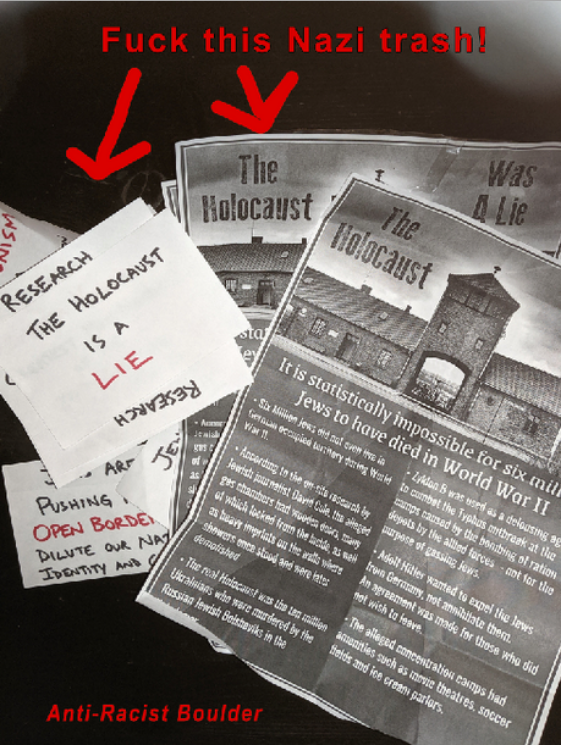 Fuck this Nazi trash!
RESEARCH
THE HOLOCAUST
IS A
LIE
RESEARCH
PUSHING
OPEN BORDE
DILUTE OUR NAT
IDENTITY AND
The
Holocaust
Was
A Lie
The
Holocaust
It is statistically impossible for six mill
Jews to have died in World War II
- Six Million Jews did not even live in
German occupied territory during World
War II.
- According to the on-site research by
Jewish journalist David Cole, the alleged
gas chambers had wooden doors, many
of which locked from the inside, as well
as heavy imprints on the walls where
showers once stood and were later
demolished
- The real Holocaust was the ten million
Ukrainians who were murdered by the
Russian Jewish Bolsheviks in the
- Zyklon B was used as a delousing ag
to combat the Typhus outbreak at the
camps caused by the bombing of ration
depots by the allied forces - not for the
purpose of gassing Jews.
- Adolf Hitler wanted to expel the Jews
from Germany, not annihilate them.
An agreement was made for those who did
not wish to leave.
- The alleged concentration camps had
amenities such as movie theatres, soccer
fields and ice cream parlors.
Anti-Racist Boulder